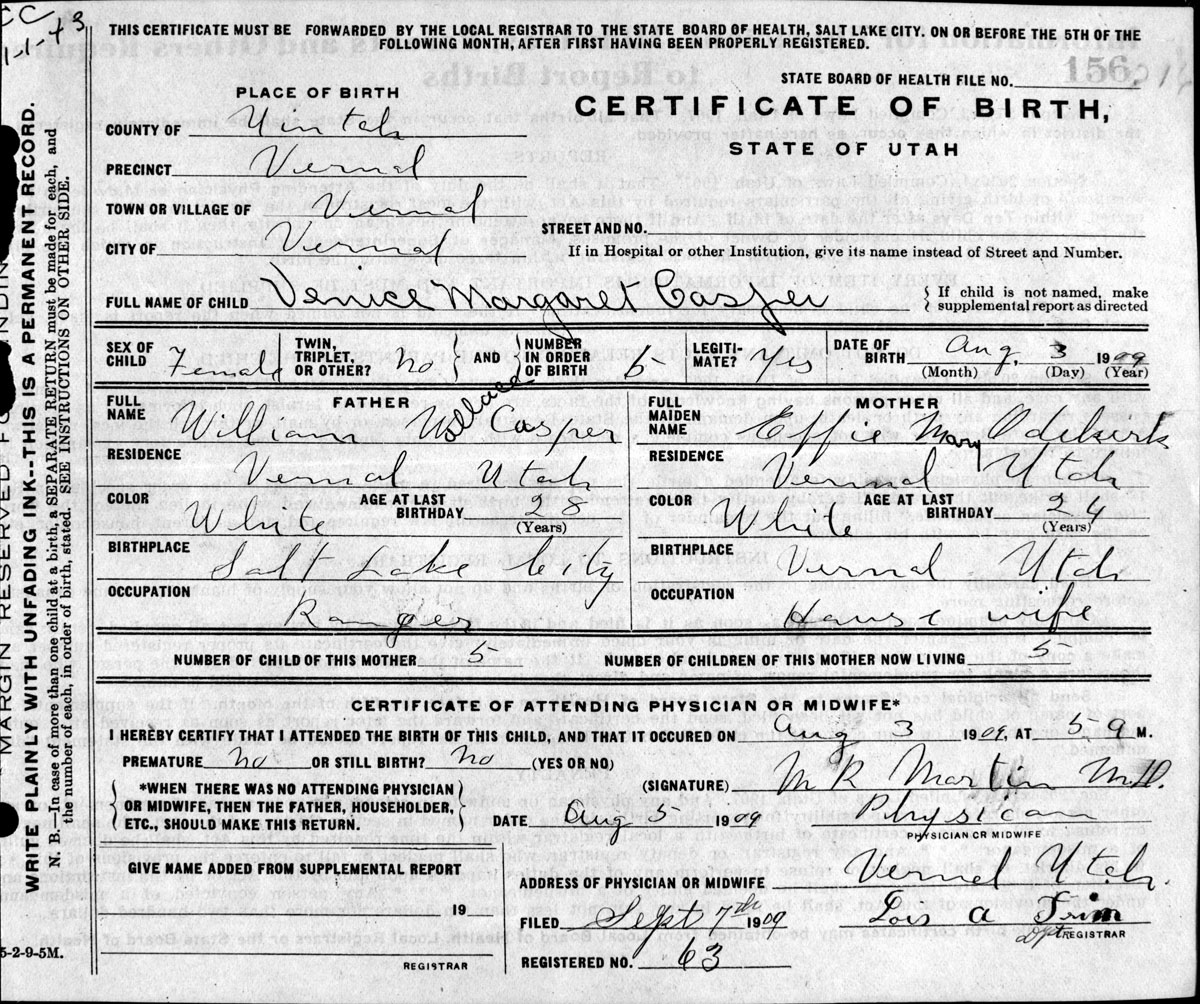 CC
1-1-43
THIS CERTIFICATE MUST BE FORWARDED BY THE LOCAL REGISTRAR TO THE STATE BOARD OF HEALTH, SALT LAKE CITY. ON OR BEFORE THE 5TH OF THE
FOLLOWING MONTH, AFTER FIRST HAVING BEEN PROPERLY REGISTERED.
STATE BOARD OF HEALTH FILE NO. 156
PLACE OF BIRTH
CERTIFICATE OF BIRTH,
STATE OF UTAH
COUNTY OF Uintah
PRECINCT Vernal
TOWN OR VILLAGE OF Vernal
STREET AND NO.
CITY OF Vernal
If in Hospital or other Institution, give its name instead of Street and Number.
FULL NAME OF CHILD Venice Margaret Casper
{ If child is not named, make
supplemental report as directed
SEX OF CHILD Female
TWIN, TRIPLET, OR OTHER? No } AND { NUMBER IN ORDER OF BIRTH 5
LEGITI-MATE? yes
DATE OF BIRTH Aug. 3 1909
(Month) (Day) (Year)
FATHER
FULL NAME William Wallace Casper
RESIDENCE Vernal Utah
COLOR White AGE AT LAST BIRTHDAY 28
(Years)
BIRTHPLACE Salt Lake City
OCCUPATION Ranger
MOTHER
FULL MAIDEN NAME Effie Mary Odekirk
RESIDENCE Vernal Utah
COLOR White AGE AT LAST BIRTHDAY 24
(Years)
BIRTHPLACE Vernal Utah
OCCUPATION House wife
NUMBER OF CHILD OF THIS MOTHER 5 NUMBER OF CHILDREN OF THIS MOTHER NOW LIVING 5
CERTIFICATE OF ATTENDING PHYSICIAN OR MIDWIFE*
I HEREBY CERTIFY THAT I ATTENDED THE BIRTH OF THIS CHILD, AND THAT IT OCCURED ON Aug 3 1909, AT 5 a M.
PREMATURE No OR STILL BIRTH? No (YES OR NO)
(SIGNATURE) M R Martin M.D.
{ *WHEN THERE WAS NO ATTENDING PHYSICIAN
OR MIDWIFE, THEN THE FATHER, HOUSEHOLDER,
ETC., SHOULD MAKE THIS RETURN. }
DATE Aug 3 1909 Physican
PHYSICIAN OR MIDWIFE
GIVE NAME ADDED FROM SUPPLEMENTAL REPORT
19
REGISTRAR
ADDRESS OF PHYSICIAN OR MIDWIFE Vernal Utah.
FILED Sept 7th 1909 Lois A Trim
Dpt REGISTRAR
REGISTERED NO. 63
MARGIN RESERVED
WRITE PLAINLY WITH UNFADING INK--THIS IS A PERMANENT RECORD.
N. B.-In case of more than one child at a birth, a SEPARATE RETURN must be made for each, and
the number of each, in order of birth, stated. SEE INSTRUCTIONS ON OTHER SIDE.
5-2-9-5M.